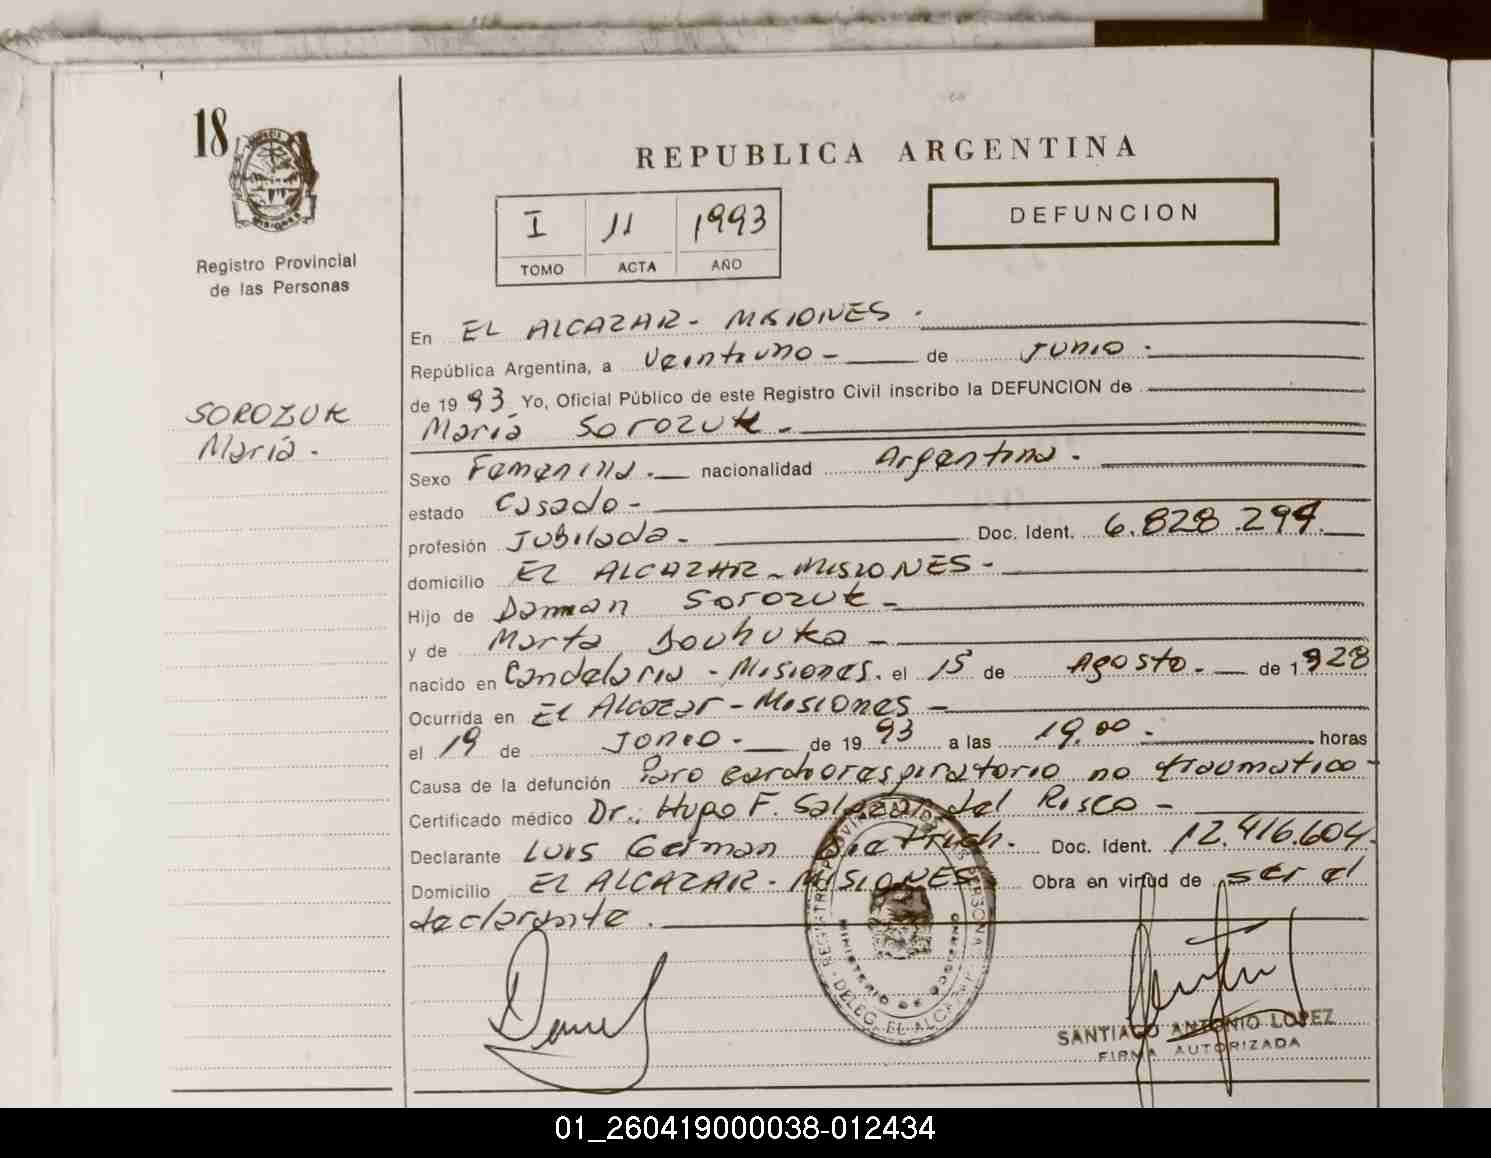 18
REPUBLICA ARGENTINA
I 11 1993
TOMO ACTA AÑO
DEFUNCION
MISIONES
Registro Provincial
de las Personas
SOROZUK
María.
En EL ALCAZAR - MISIONES.
República Argentina, a veintiuno - de Junio.
de 1993. Yo, Oficial Público de este Registro Civil inscribo la DEFUNCION de
María Sorozuk -
Sexo Femenino. nacionalidad Argentina.
estado Casado -
profesión Jubilada - Doc. Ident. 6.828.294.
domicilio EL ALCAZAR - MISIONES -
Hijo de Damian Sorozuk -
y de Marta
nacido en Candelaria - Misiones. el 15 de Agosto. - de 1928
Ocurrida en El Alcazar - Misiones -
el 19 de Junio. - de 1993 a las 19,00. horas
Causa de la defunción Paro cardiorespiratorio no traumatico -
Certificado médico Dr.: Hugo F. Salazar del Risco -
Declarante Luis German Dietrich. Doc. Ident. 12.416.604.
Domicilio EL ALCAZAR - MISIONES Obra en virtud de ser el
declarante.
REGISTRO PROVINCIAL DE LAS PERSONAS
MINISTERIO DE GOBIERNO
DELEG. EL ALCAZAR
SANTIAGO ANTONIO LOPEZ
FIRMA AUTORIZADA
01_260419000038-012434